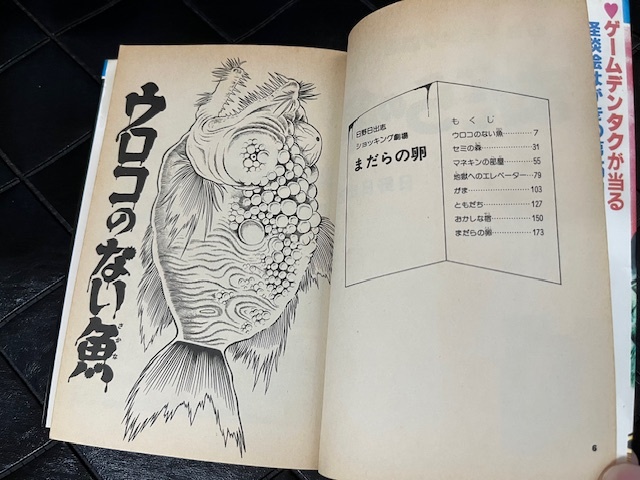 ウロコのない魚
さかな
日野日出志
ショッキング劇場
まだらの卵
もくじ
ウロコのない魚………7
セミの森………31
マネキンの部屋………55
地獄へのエレベーター…79
がま………103
ともだち………127
おかしな宿………150
まだらの卵………173
6
♥ゲームデンタクが当る
怪談絵はがき